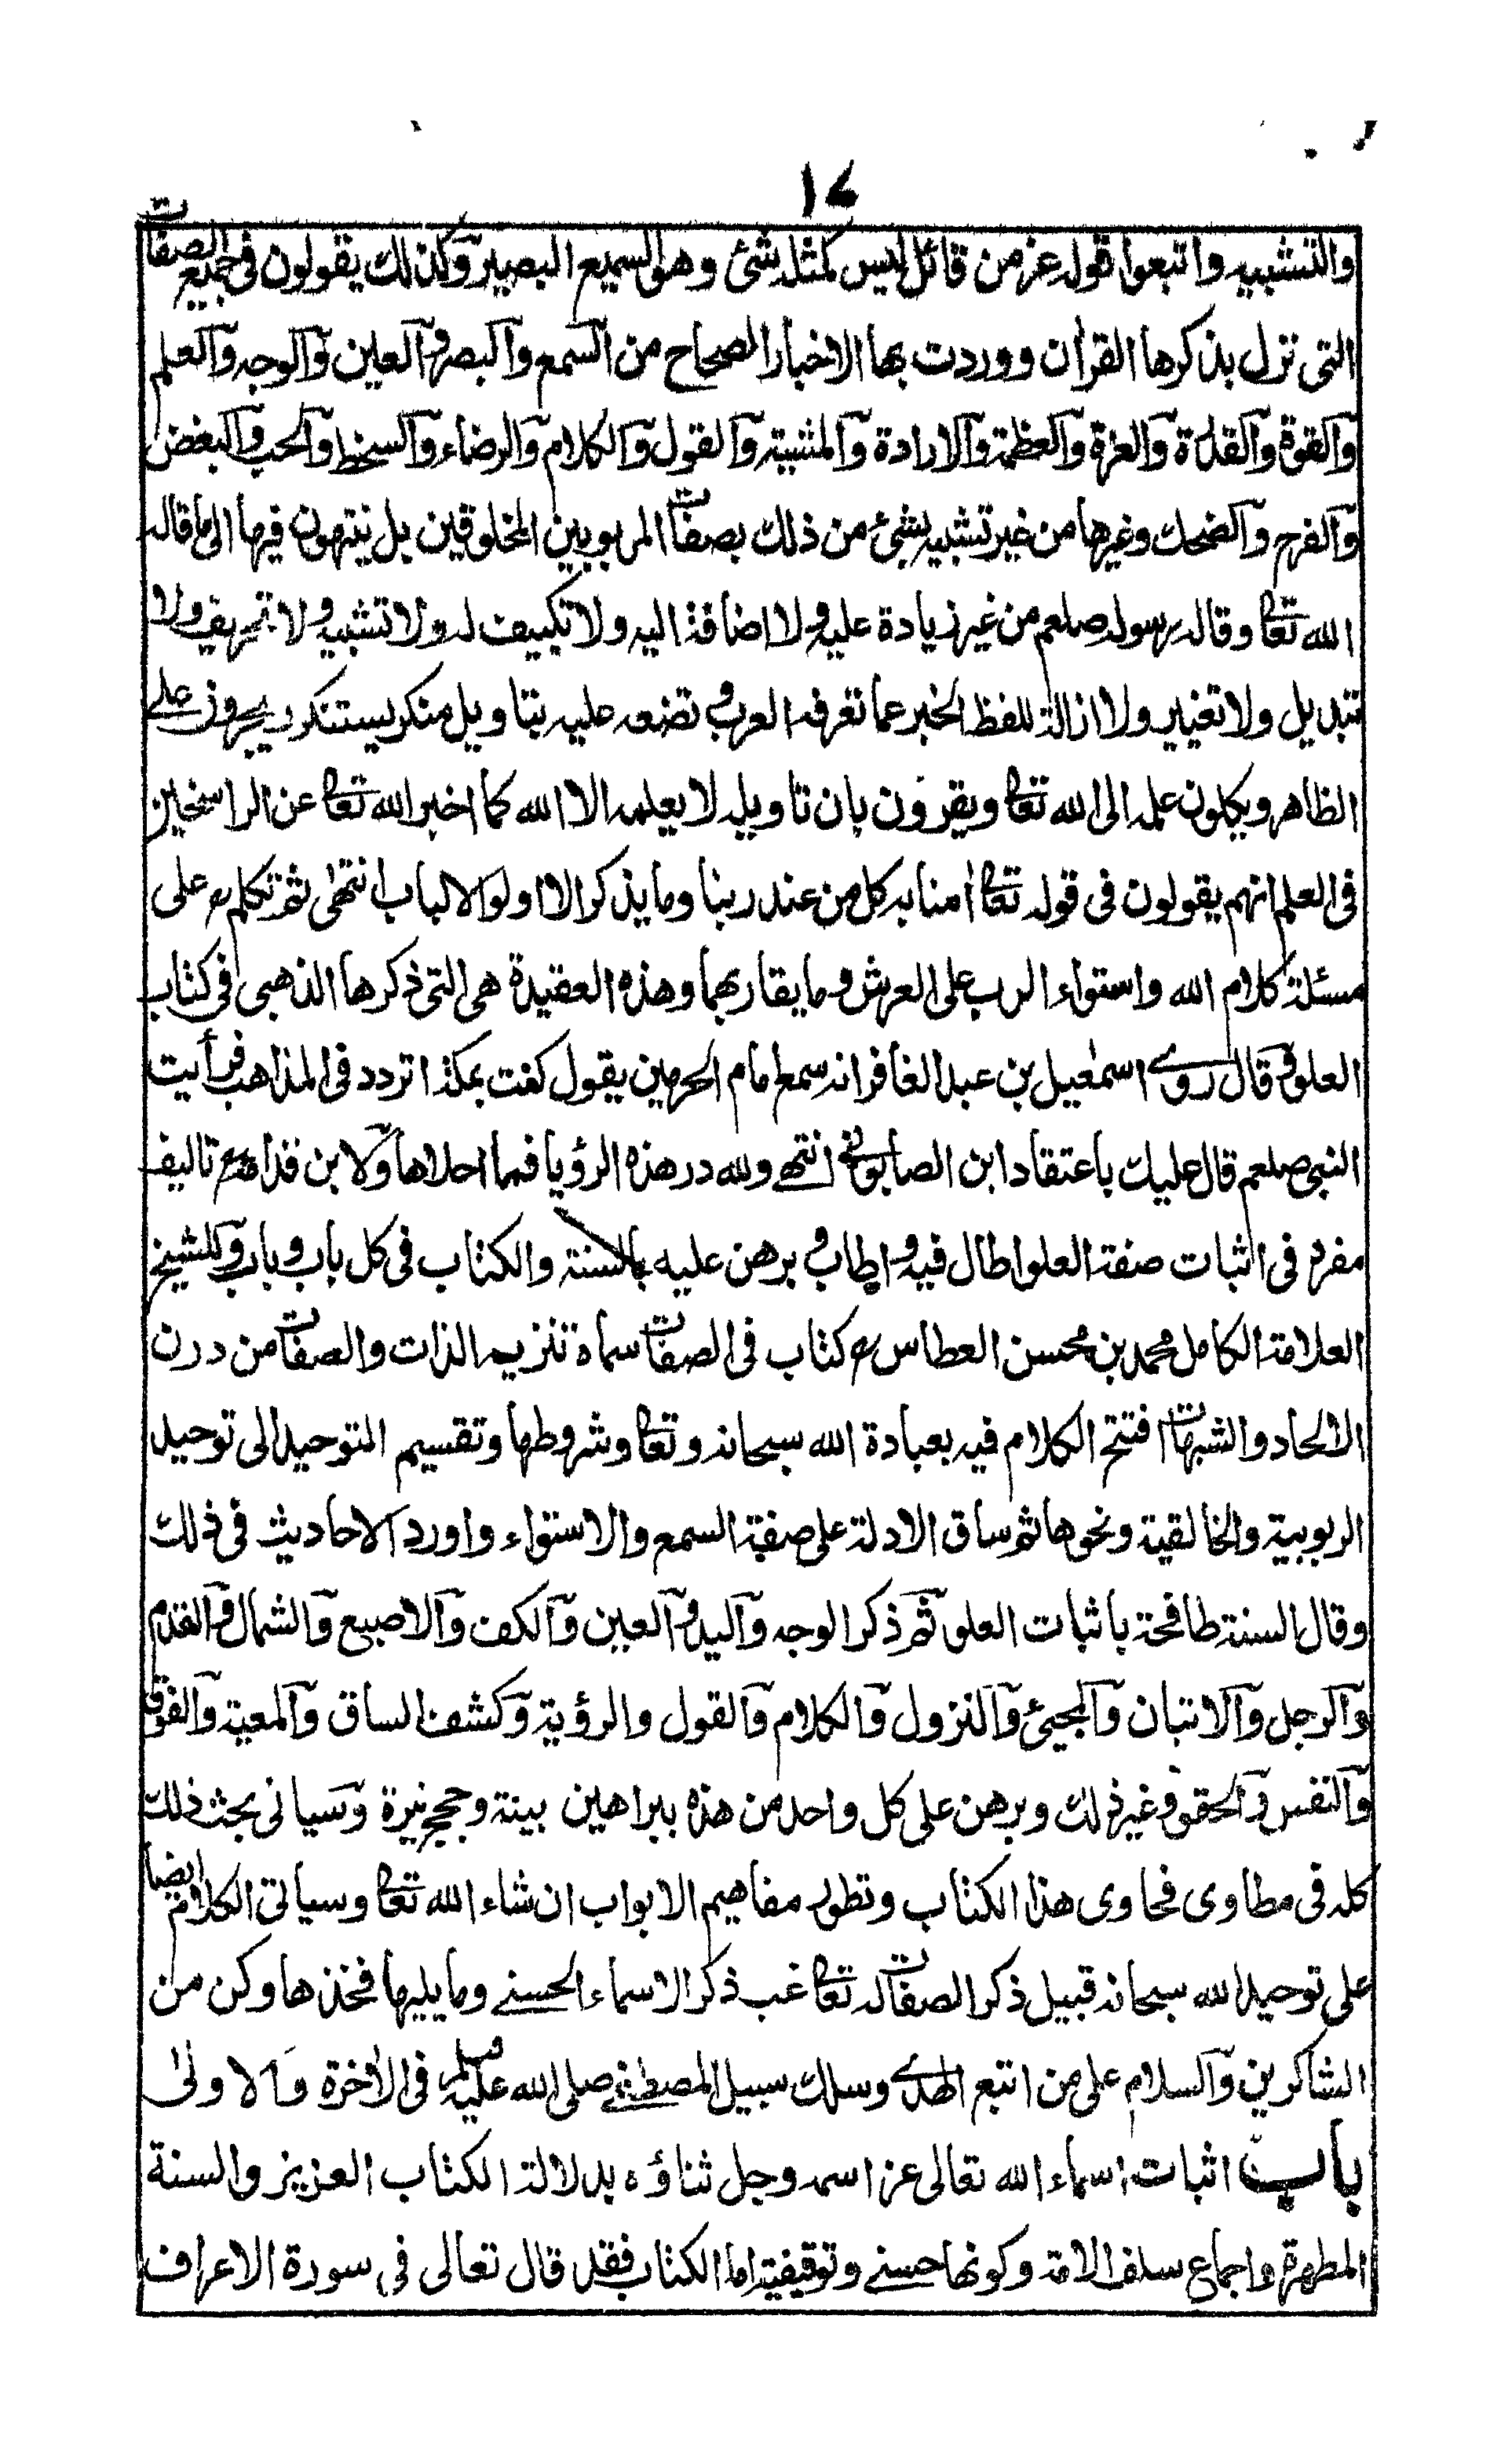 ١٧
والتشبيه واتبعوا قوله عز من قائل ليس كمثله شئ وهو السميع البصير وكذلك يقولون فى جميع الصفات
التى نزل بذكرها القرآن ووردت بها الاخبار الصحاح من السمع والبصر والعين والوجه والعلم
والقوة والقدرة والعزة والعظمة والارادة والمشية والقول والكلام والرضاء والسخط والحب والبغض
والفرح والضحك وغيرها من غير تشبيه بشئ من ذلك بصفات المربوبين المخلوقين بل ينتهون فيها الى ما قاله
الله تعا وقاله رسوله صلعم من غير زيادة عليه ولا اضافة اليه ولا تكييف له ولا تشبيه ولا تحريف ولا
تبديل ولا تغيير ولا ازالة للفظ الخبر عما تعرفه العرب وتضعه عليه بتاويل منكر يستنكر ويجرون على
الظاهر ويكلون علمه الى الله تعا ويقرون بان تاويله لا يعلمه الا الله كما اخبر الله تعا عن الراسخين
فى العلم انهم يقولون فى قوله تعا امنا به كل من عند ربنا وما يذكر الا اولوا الالباب انتهى ثم تكلم رح على
مسئلة كلام الله واستواء الرب على العرش وما يقاربهما وهذه العقيدة هى التى ذكرها الذهبى فى كتاب
العلو وقال روى اسمعيل بن عبد الغافر انه سمع امام الحرمين يقول كنت بمكة اتردد فى المذاهب فرأيت
النبى صلعم قال عليك باعتقاد ابن الصابونى انتهى ولله در هذه الرؤيا فما احلاها ولابن قدامة رح تاليف
مفرد فى اثبات صفة العلو اطال فيه واطاب وبرهن عليه بالسنة والكتاب فى كل باب وباب وللشيخ
العلامة الكامل محمد بن محسن العطاس رح كتاب فى الصفات سماه تنزيه الذات والصفات من درن
الالحاد والشبهات افتتح الكلام فيه بعبادة الله سبحانه وتعا وشروطها وتقسيم التوحيد الى توحيد
الربوبية والخالقية ونحوها ثم ساق الادلة على صفة السمع والاستواء واورد الاحاديث فى ذلك
وقال السنة طافحة باثبات العلو ثم ذكر الوجه واليد والعين والكف والاصبع والشمال والقدم
والرجل والاتيان والمجيئ والنزول والكلام والقول والرؤية وكشف الساق والمعية والفوق
والنفس والحقو وغير ذلك وبرهن على كل واحد من هذه ببراهين بينة وحجج نيرة وسياتى بحث ذلك
كله فى مطاوى فحاوى هذا الكتاب وتطور مفاهيم الابواب ان شاء الله تعا وسياتى الكلام ايضا
على توحيد الله سبحانه قبيل ذكر الصفات له تعا غب ذكر الاسماء الحسنى وما يليها فخذها وكن من
الشاكرين والسلام على من اتبع الهدى وسلك سبيل المصطفى صلى الله عليه وسلم فى الاخرة والاولى
باب اثبات اسماء الله تعالى عز اسمه وجل ثناؤه بدلالة الكتاب العزيز والسنة
المطهرة واجماع سلف الامة وكونها حسنى وتوقيفية اما الكتاب فقد قال تعالى فى سورة الاعراف